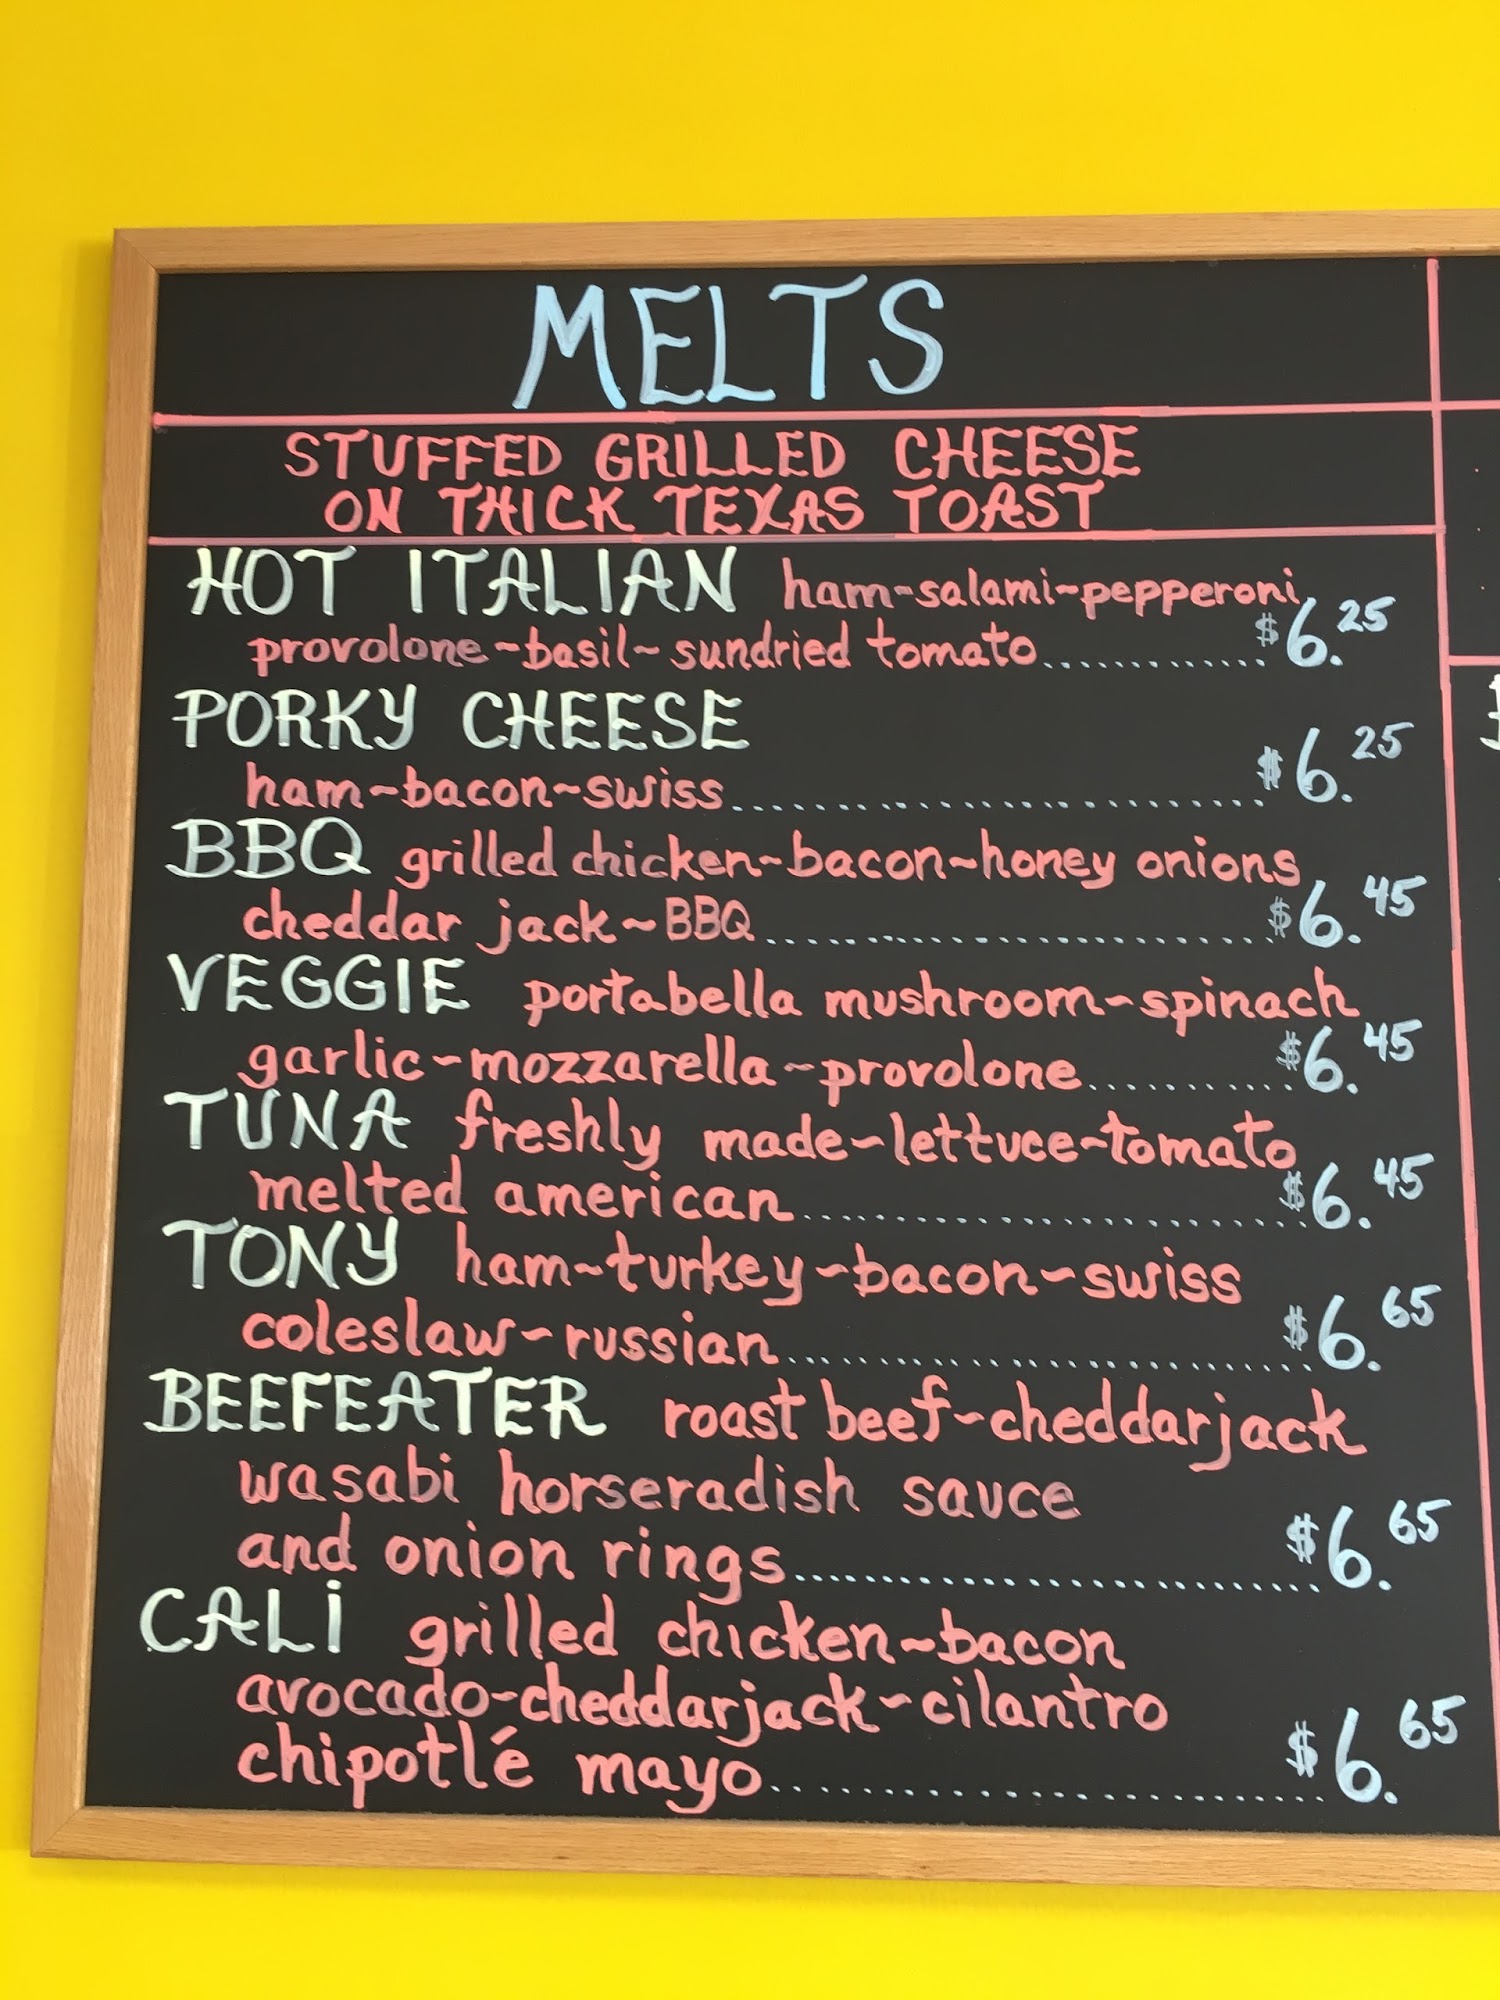 MELTS
STUFFED GRILLED CHEESE
ON THICK TEXAS TOAST
HOT ITALIAN ham-salami~pepperoni
provolone~basil~sundried tomato............. $6.25
PORKY CHEESE
ham~bacon~swiss............................ $6.25
BBQ grilled chicken~bacon~honey onions
cheddar jack~BBQ........................... $6.45
VEGGIE portabella mushroom~spinach
garlic~mozzarella~provolone............ $6.45
TUNA freshly made~lettuce~tomato
melted american........................... $6.45
TONY ham~turkey~bacon~swiss
coleslaw~russian........................... $6.65
BEEFEATER roast beef~cheddarjack
wasabi horseradish sauce
and onion rings........................... $6.65
CALI grilled chicken~bacon
avocado~cheddarjack~cilantro
chipotlé mayo........................... $6.65